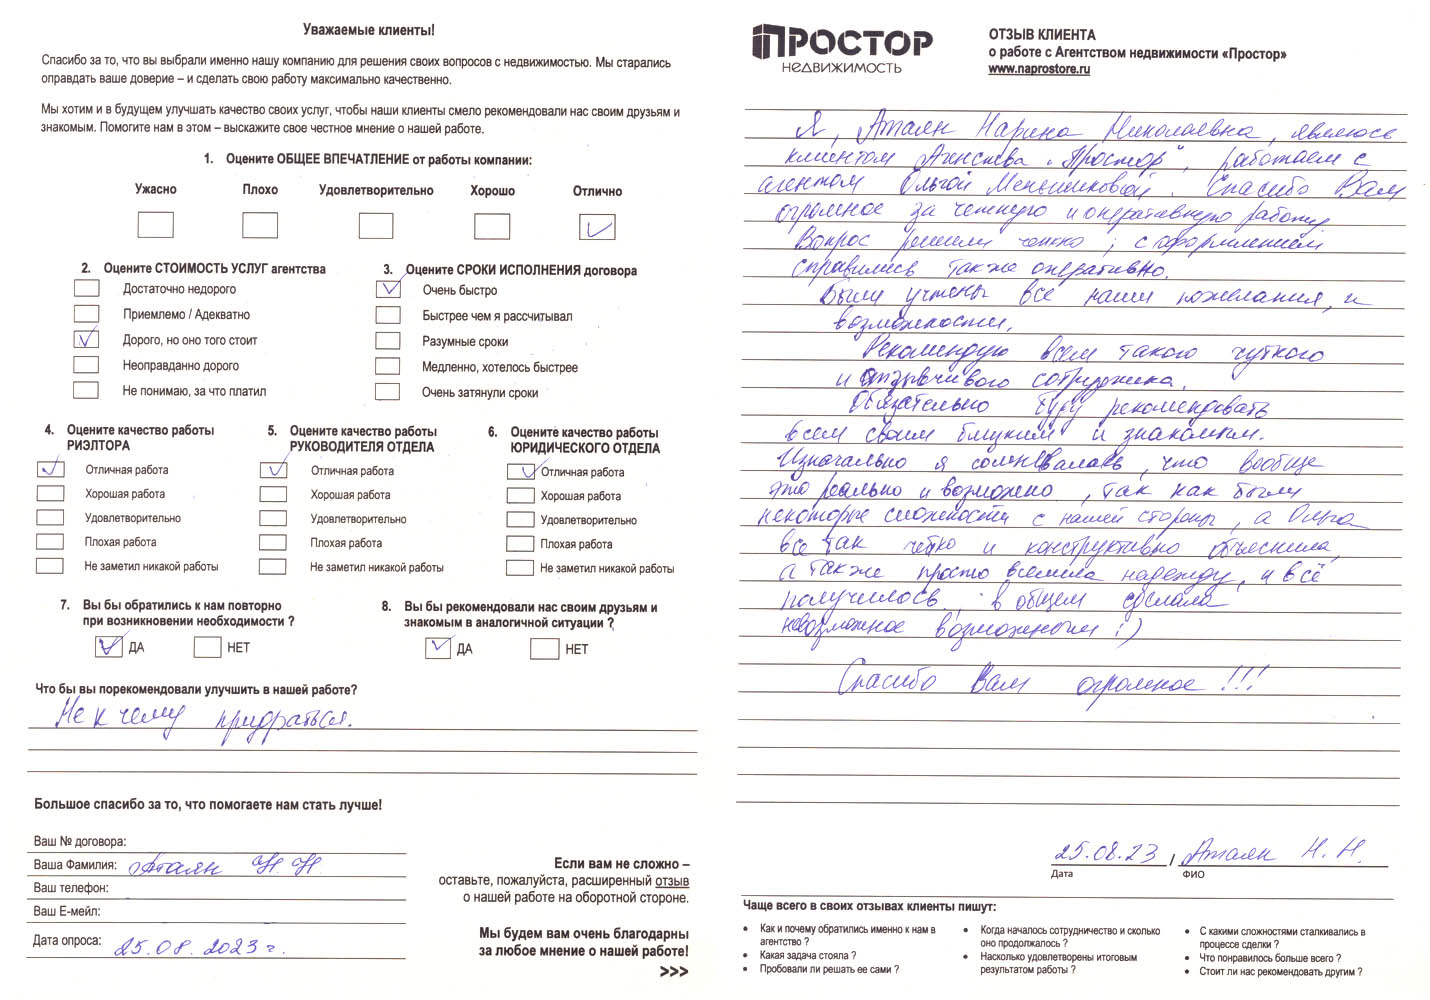 Уважаемые клиенты!
Спасибо за то, что вы выбрали именно нашу компанию для решения своих вопросов с недвижимостью. Мы старались
оправдать ваше доверие – и сделать свою работу максимально качественно.
Мы хотим и в будущем улучшать качество своих услуг, чтобы наши клиенты смело рекомендовали нас своим друзьям и
знакомым. Помогите нам в этом – выскажите свое честное мнение о нашей работе.
1. Оцените ОБЩЕЕ ВПЕЧАТЛЕНИЕ от работы компании:
Ужасно Плохо Удовлетворительно Хорошо Отлично
2. Оцените СТОИМОСТЬ УСЛУГ агентства
Достаточно недорого
Приемлемо / Адекватно
Дорого, но оно того стоит
Неоправданно дорого
Не понимаю, за что платил
3. Оцените СРОКИ ИСПОЛНЕНИЯ договора
Очень быстро
Быстрее чем я рассчитывал
Разумные сроки
Медленно, хотелось быстрее
Очень затянули сроки
4. Оцените качество работы
РИЭЛТОРА
Отличная работа
Хорошая работа
Удовлетворительно
Плохая работа
Не заметил никакой работы
5. Оцените качество работы
РУКОВОДИТЕЛЯ ОТДЕЛА
Отличная работа
Хорошая работа
Удовлетворительно
Плохая работа
Не заметил никакой работы
6. Оцените качество работы
ЮРИДИЧЕСКОГО ОТДЕЛА
Отличная работа
Хорошая работа
Удовлетворительно
Плохая работа
Не заметил никакой работы
7. Вы бы обратились к нам повторно
при возникновении необходимости ?
ДА НЕТ
8. Вы бы рекомендовали нас своим друзьям и
знакомым в аналогичной ситуации ?
ДА НЕТ
Что бы вы порекомендовали улучшить в нашей работе?
Не к чему придраться.
Большое спасибо за то, что помогаете нам стать лучше!
Ваш № договора:
Ваша Фамилия: Аталян Н.Н
Ваш телефон:
Ваш E-мейл:
Дата опроса: 25.08.2023 г.
Если вам не сложно –
оставьте, пожалуйста, расширенный отзыв
о нашей работе на оборотной стороне.
Мы будем вам очень благодарны
за любое мнение о нашей работе!
>>>
ПРОСТОР
НЕДВИЖИМОСТЬ
ОТЗЫВ КЛИЕНТА
о работе с Агентством недвижимости «Простор»
www.naprostore.ru
Я, Аталян Нарина Николаевна, являюсь
клиентом Агенства "Простор", работаем с
агентом Ольгой Меньшиковой. Спасибо Вам
огромное за четкую и оперативную работу
Вопрос решили четко, с оформлением
справились также оперативно.
Были учтены все наши пожелания, и
возможности.
Рекомендую всем такого чуткого
и отзывчивого сотрудника.
Обязательно буду рекомендовать
всем своим близким и знакомым.
Изначально я сомневалась, что вообще
это реально и возможно, так как были
некоторые сложности с нашей стороны, а Ольга
все так четко и конструктивно объяснила,
а также просто вселила надежду, и всё
получилось, в общем сделала
невозможное возможным :)
Спасибо Вам огромное !!!
25.08.23 / Аталян Н.Н.
Дата ФИО
Чаще всего в своих отзывах клиенты пишут:
• Как и почему обратились именно к нам в
агентство ?
• Какая задача стояла ?
• Пробовали ли решать ее сами ?
• Когда началось сотрудничество и сколько
оно продолжалось ?
• Насколько удовлетворены итоговым
результатом работы ?
• С какими сложностями сталкивались в
процессе сделки ?
• Что понравилось больше всего ?
• Стоит ли нас рекомендовать другим ?